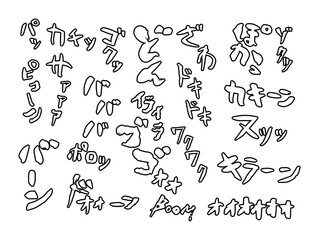 パッ
カキッ
ゴクッ
しーん
ざわ
ぽかーん
ゾクッ
ピューン
サァァァ
ババババ
ドキドキ
イライラ
カキーン
ヌッッ
ゴゴ
ワクワク
バーン
ポロッ
キラーン
ドォーン
Boom
オオオオオオ